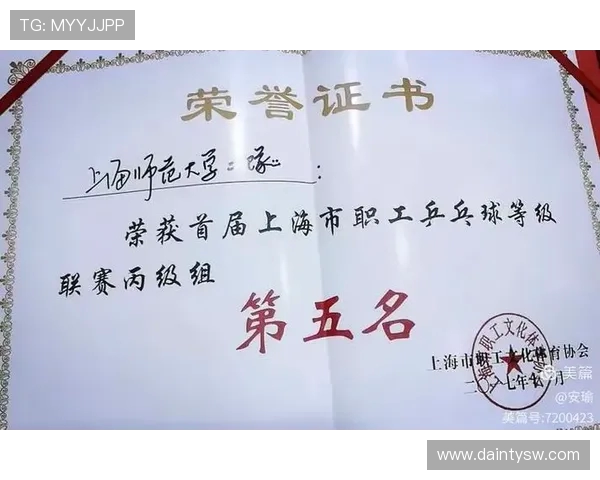 TG: MYYJJPP
荣誉证书
上海师范大学二队:
荣获首届上海市职工乒乓球等级
联赛丙级组
第五名
上海市职工文化体育协会
二〇一七年十一月
美篇
@安瑜
美篇号:7200423
www.daintysw.com